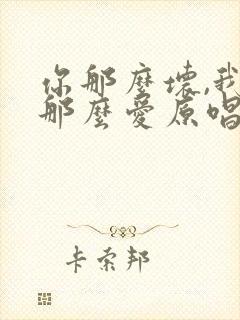 你那麼壞,我
那麼愛原唱
卡索邦